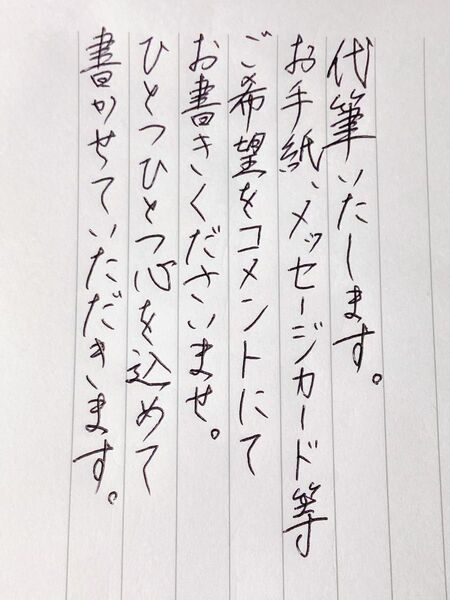 代筆いたします。
お手紙、メッセージカード等
ご希望をコメントにて
お書きくださいませ。
ひとつひとつ心を込めて
書かせていただきます。